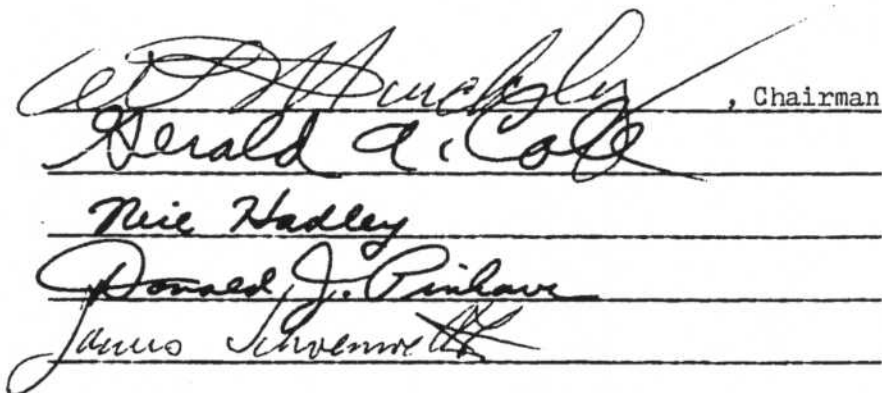 , Chairman
Gerald A. Cole
Neil Hadley
Donald J. Pinkava
James Schoenwetter